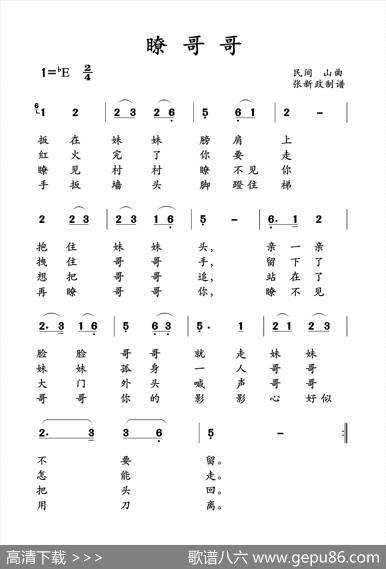 瞭 哥 哥
1=♭E 2/4
民间 山曲
张新政制谱
6 1 2 2 2 3 2 3 6 5 6 1 2 -
扳 在 妹 妹 膀 肩 上
红 火 完 了 你 要 走
瞭 见 村 村 瞭 不见 你
手 扳 墙 头 脚 蹬住 梯
2 2 3 2 3 1 6 5 - 6. 1 2
抱 住 妹 妹 头， 亲 一 亲
拽 住 哥 哥 手， 留 下 了
想 把 哥 哥 追， 站 在 了
再 瞭 哥 哥 你， 瞭 不 见
2. 3 1 6 5 6 3 5. 1 2 1 6 5
脸 脸 哥 哥 就 走 妹 妹
妹 妹 孤 身 一 人 哥 哥
大 门 外 头 喊 声 哥 哥
哥 哥 你 的 影 影 心 好似
2. 3 3. 6 5 - :‖
不 要 留。
怎 能 走。
把 头 回。
用 刀 离。
高清下载 >>> 歌谱八六 www.gepu86.com